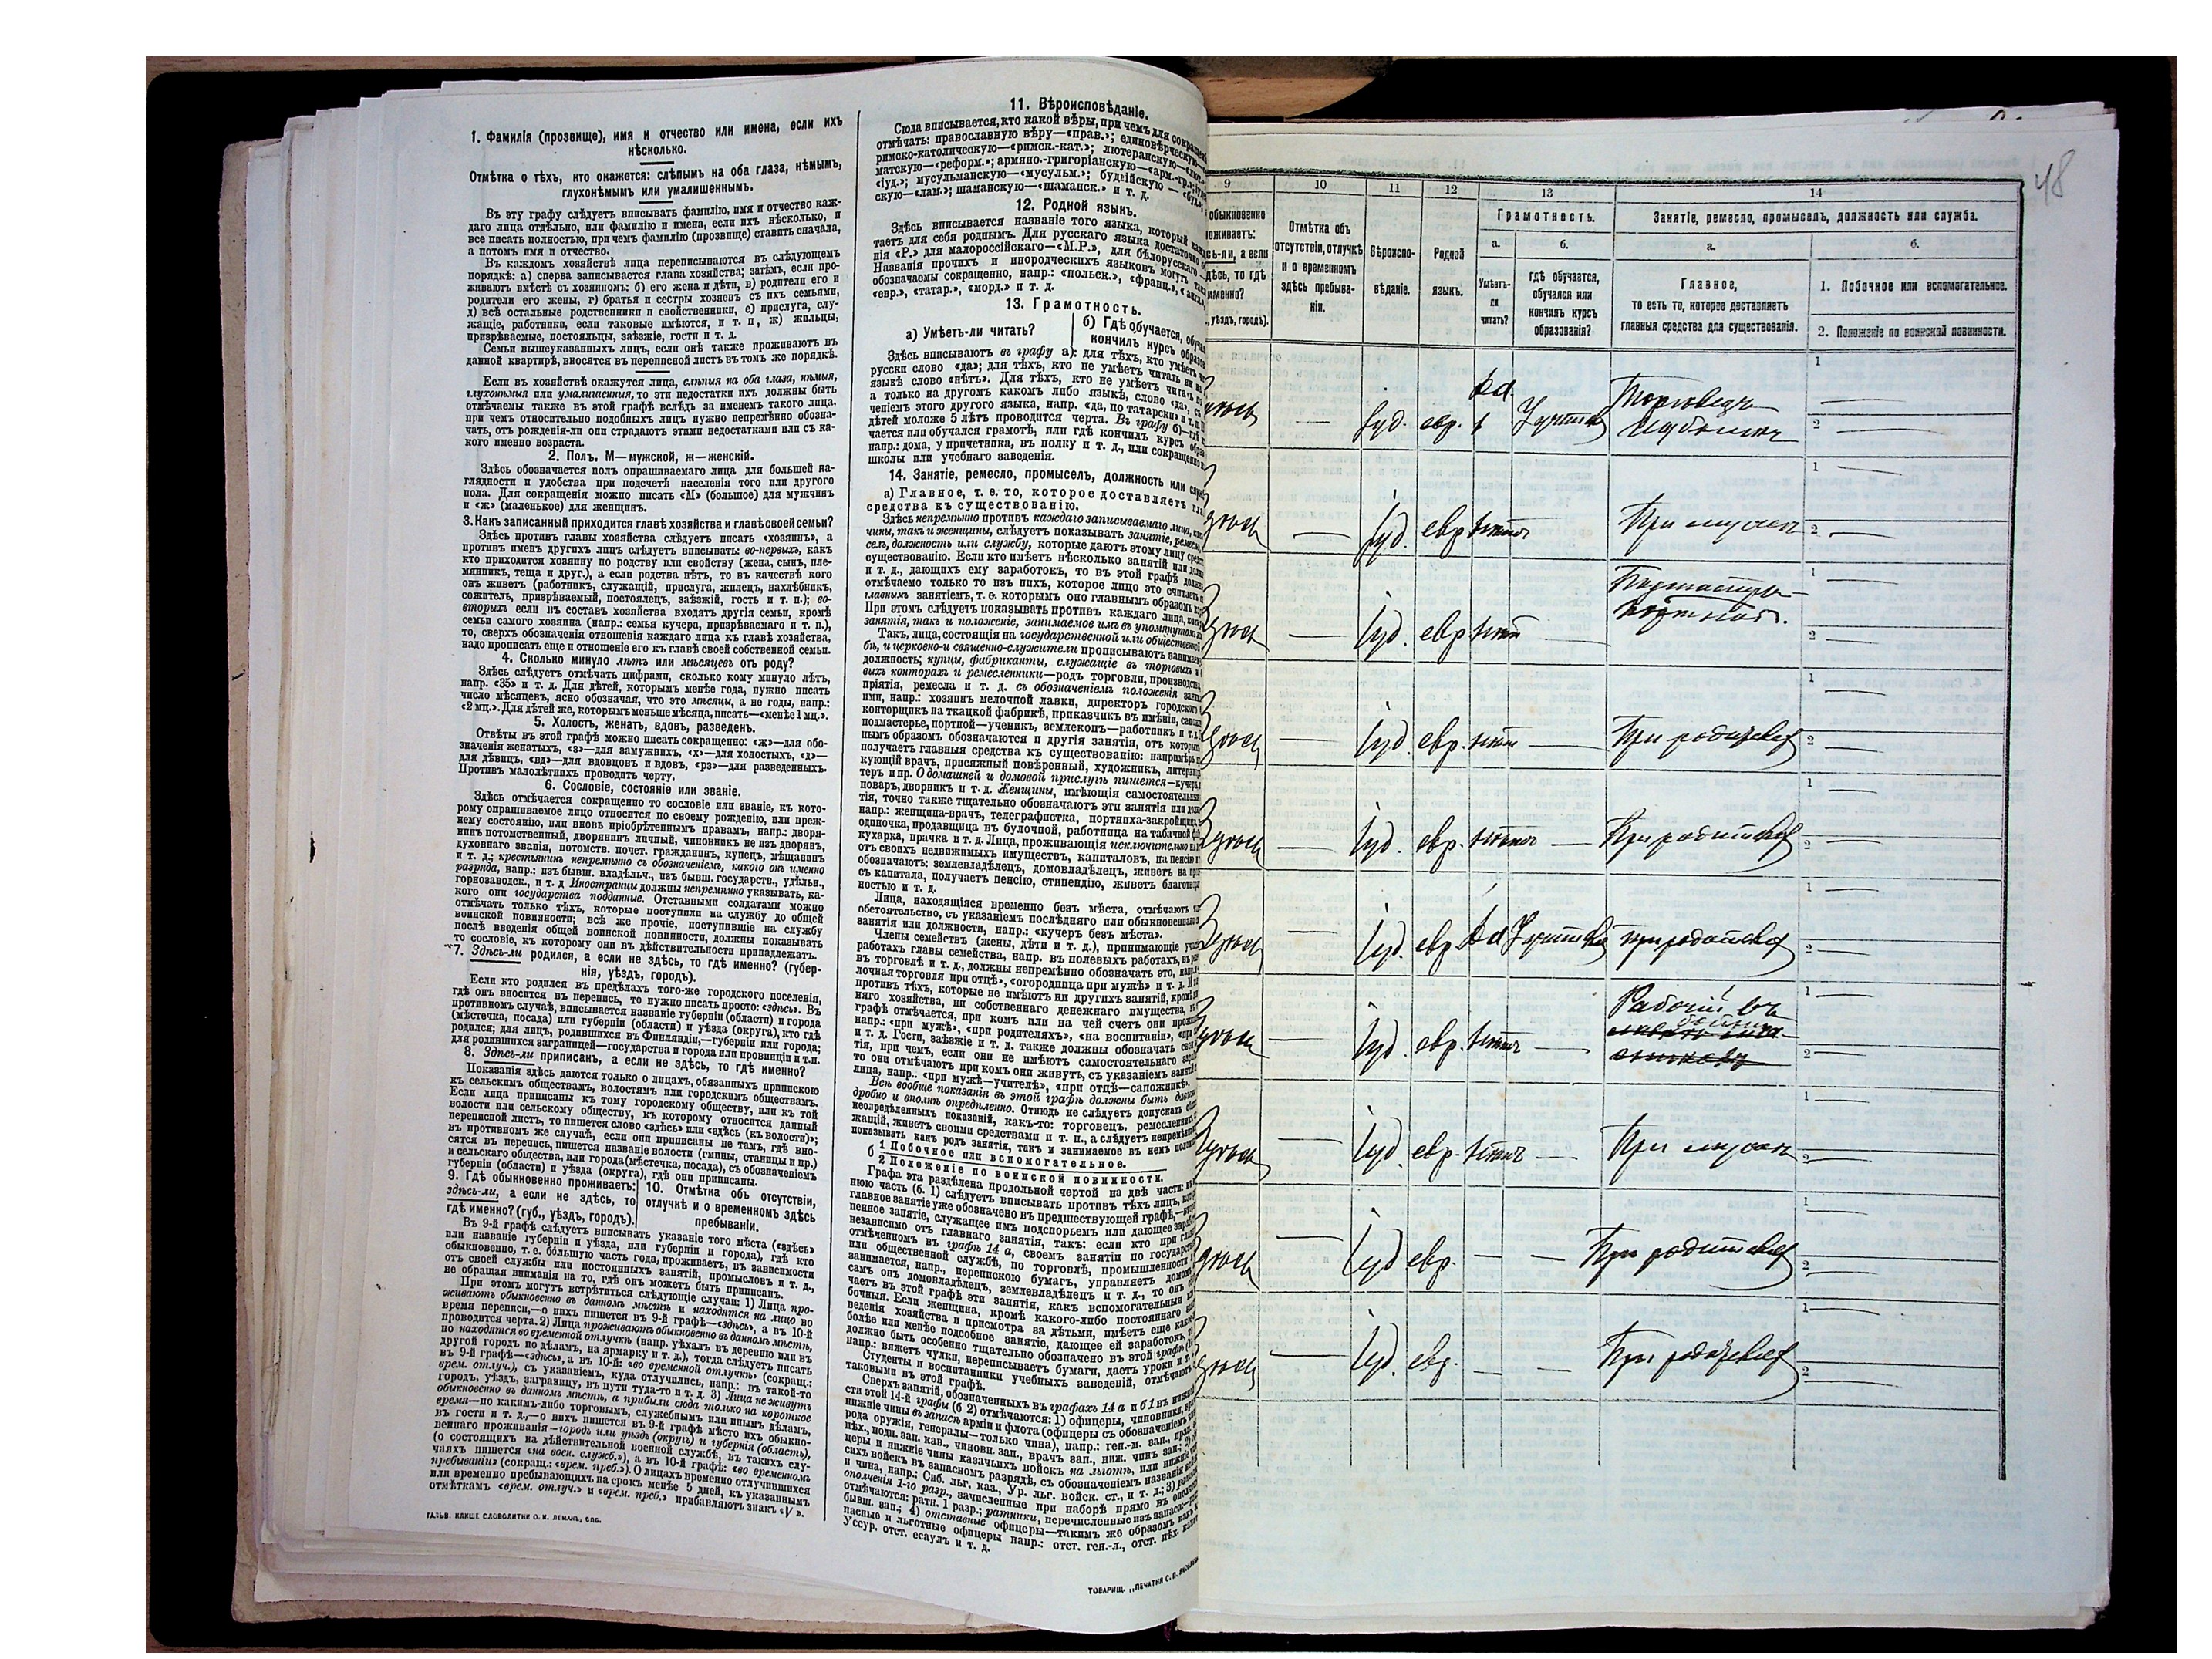 1. Фамилія (прозвище), имя и отчество или имена, если ихъ
нѣсколько.
Отмѣтка о тѣхъ, кто окажется: слѣпымъ на оба глаза, нѣмымъ,
глухонѣмымъ или умалишеннымъ.
Въ эту графу слѣдуетъ вписывать фамилію, имя и отчество каж-
даго лица отдѣльно, или фамилію и имена, если ихъ нѣсколько, и
все писать полностью, при чемъ фамилію (прозвище) ставить сначала,
а потомъ имя и отчество.
Въ каждомъ хозяйствѣ лица переписываются въ слѣдующемъ
порядкѣ: а) сперва записывается глава хозяйства; затѣмъ, если про-
живаютъ вмѣстѣ съ хозяиномъ: б) его жена и дѣти, в) родители его и
родители его жены, г) братья и сестры хозяевъ съ ихъ семьями,
д) всѣ остальные родственники и свойственники, е) прислуга, слу-
жащіе, работники, если таковые имѣются, и т. п, ж) жильцы,
призрѣваемые, постояльцы, заѣзжіе, гости и т. д.
Семьи вышеуказанныхъ лицъ, если онѣ также проживаютъ въ
данной квартирѣ, вносятся въ переписной листъ въ томъ же порядкѣ.
Если въ хозяйствѣ окажутся лица, слѣпыя на оба глаза, нѣмыя,
глухонѣмыя или умалишенныя, то эти недостатки ихъ должны быть
отмѣчаемы также въ этой графѣ вслѣдъ за именемъ такого лица,
при чемъ относительно подобныхъ лицъ нужно непремѣнно обозна-
чать, отъ рожденія-ли они страдаютъ этими недостатками или съ ка-
кого именно возраста.
2. Полъ. М—мужской, ж—женскій.
Здѣсь обозначается полъ опрашиваемаго лица для большей на-
глядности и удобства при подсчетѣ населенія того или другого
пола. Для сокращенія можно писать «М» (большое) для мужчинъ
и «ж» (маленькое) для женщинъ.
3. Какъ записанный приходится главѣ хозяйства и главѣ своей семьи?
Здѣсь противъ главы хозяйства слѣдуетъ писать «хозяинъ», а
противъ именъ другихъ лицъ слѣдуетъ вписывать: во-первыхъ, какъ
кто приходится хозяину по родству или свойству (жена, сынъ, пле-
мянникъ, теща и друг.), а если родства нѣтъ, то въ качествѣ кого
онъ живетъ (работникъ, служащій, прислуга, жилецъ, нахлѣбникъ,
сожитель, призрѣваемый, постоялецъ, заѣзжій, гость и т. п.); во-
вторыхъ если въ составъ хозяйства входятъ другія семьи, кромѣ
семьи самого хозяина (напр.: семья кучера, призрѣваемаго и т. п.),
то, сверхъ обозначенія отношенія каждаго лица къ главѣ хозяйства,
надо прописать еще и отношеніе его къ главѣ своей собственной семьи.
4. Сколько минуло лѣтъ или мѣсяцевъ отъ роду?
Здѣсь слѣдуетъ отмѣчать цифрами, сколько кому минуло лѣтъ,
напр. «35» и т. д. Для дѣтей, которымъ менѣе года, нужно писать
число мѣсяцевъ, ясно обозначая, что это мѣсяцы, а не годы, напр.:
«2 мц.». Для дѣтей же, которымъ меньше мѣсяца, писать—«менѣе 1 мц.».
5. Холостъ, женатъ, вдовъ, разведенъ.
Отвѣты въ этой графѣ можно писать сокращенно: «ж»—для обо-
значенія женатыхъ, «з»—для замужнихъ, «х»—для холостыхъ, «д»—
для дѣвицъ, «вд»—для вдовцовъ и вдовъ, «рз»—для разведенныхъ.
Противъ малолѣтнихъ проводить черту.
6. Сословіе, состояніе или званіе.
Здѣсь отмѣчается сокращенно то сословіе или званіе, къ кото-
рому опрашиваемое лицо относится по своему рожденію, или преж-
нему состоянію, или вновь пріобрѣтеннымъ правамъ, напр.: дворя-
нинъ потомственный, дворянинъ личный, чиновникъ не изъ дворянъ,
духовнаго званія, потомств. почет. гражданинъ, купецъ, мѣщанинъ
и т. д.; крестьянинъ непремѣнно съ обозначеніемъ, какого онъ именно
разряда, напр.: изъ бывш. владѣльч., изъ бывш. государств., удѣльн.,
горнозаводск., и т. д Иностранцы должны непремѣнно указывать, ка-
кого они государства подданные. Отставными солдатами можно
отмѣчать только тѣхъ, которые поступили на службу до общей
воинской повинности; всѣ же прочіе, поступившіе на службу
послѣ введенія общей воинской повинности, должны показывать
то сословіе, къ которому они въ дѣйствительности принадлежатъ.
7. Здѣсь-ли родился, а если не здѣсь, то гдѣ именно? (губер-
нія, уѣздъ, городъ).
Если кто родился въ предѣлахъ того-же городского поселенія,
гдѣ онъ вносится въ перепись, то нужно писать просто: «здѣсь». Въ
противномъ случаѣ, вписывается названіе губерніи (области) и города
(мѣстечка, посада) или губерніи (области) и уѣзда (округа), кто гдѣ
родился; для лицъ, родившихся въ Финляндіи,—губерніи или города;
для родившихся заграницей—государства и города или провинціи и т.п.
8. Здѣсь-ли приписанъ, а если не здѣсь, то гдѣ именно?
Показанія здѣсь даются только о лицахъ, обязанныхъ припискою
къ сельскимъ обществамъ, волостямъ или городскимъ обществамъ.
Если лица приписаны къ тому городскому обществу, или къ той
волости или сельскому обществу, къ которому относится данный
переписной листъ, то пишется слово «здѣсь» или «здѣсь (къ волости)»;
въ противномъ же случаѣ, если они приписаны не тамъ, гдѣ вно-
сятся въ перепись, пишется названіе волости (гмины, станицы и пр.)
и сельскаго общества, или города (мѣстечка, посада), съ обозначеніемъ
губерніи (области) и уѣзда (округа), гдѣ они приписаны.
9. Гдѣ обыкновенно проживаетъ:
здѣсь-ли, а если не здѣсь, то
гдѣ именно? (губ., уѣздъ, городъ).
10. Отмѣтка объ отсутствіи,
отлучкѣ и о временномъ здѣсь
пребываніи.
Въ 9-й графѣ слѣдуетъ вписывать указаніе того мѣста («здѣсь»
или названіе губерніи и уѣзда, или губерніи и города), гдѣ кто
обыкновенно, т. е. бо́льшую часть года, проживаетъ, въ зависимости
отъ своей службы или постоянныхъ занятій, промысловъ и т. д.,
не обращая вниманія на то, гдѣ онъ можетъ быть приписанъ.
При этомъ могутъ встрѣтиться слѣдующіе случаи: 1) Лица про-
живаютъ обыкновенно въ данномъ мѣстѣ и находятся на лицо во
время переписи,—о нихъ пишется въ 9-й графѣ—«здѣсь», а въ 10-й
проводится черта. 2) Лица проживаютъ обыкновенно въ данномъ мѣстѣ,
но находятся во временной отлучкѣ (напр. уѣхалъ въ деревню или въ
другой городъ по дѣламъ, на ярмарку и т. д.), тогда слѣдуетъ писать
въ 9-й графѣ—«здѣсь», а въ 10-й: «во временной отлучкѣ» (сокращ.:
врем. отлуч.), съ указаніемъ, куда отлучились, напр.: въ такой-то
городъ, уѣздъ, заграницу, въ пути туда-то и т. д. 3) Лица не живутъ
обыкновенно въ данномъ мѣстѣ, а прибыли сюда только на короткое
время—по какимъ-либо торговымъ, служебнымъ или инымъ дѣламъ,
въ гости и т. д.,—о нихъ пишется въ 9-й графѣ мѣсто ихъ обыкно-
веннаго проживанія—городъ или уѣздъ (округъ) и губернія (область),
(о состоящихъ на дѣйствительной военной службѣ, въ такихъ слу-
чаяхъ пишется «на воен. служб.»), а въ 10-й графѣ: «во временномъ
пребываніи» (сокращ.: «врем. преб.»). О лицахъ временно отлучившихся
или временно пребывающихъ на срокъ менѣе 5 дней, къ указаннымъ
отмѣткамъ «врем. отлуч.» и «врем. преб.» прибавляютъ знакъ «V».
ГАЛЬВ. КЛИШЕ СЛОВОЛИТНИ О. И. ЛЕМАНЪ, СПБ.
11. Вѣроисповѣданіе.
Сюда вписывается, кто какой вѣры, при чемъ для сокращенія
отмѣчать: православную вѣру—«прав.»; единовѣрческую
римско-католическую—«римск.-кат.»; лютеранскую—
матскую—«реформ.»; армяно.-григоріанскую—«арм.-гр.»;
«іуд.»; мусульманскую—«мусульм.»; буддійскую—
скую—«лам.»; шаманскую—«шаманск.» и т. д.
12. Родной языкъ.
Здѣсь вписывается названіе того языка, который
таетъ для себя роднымъ. Для русскаго языка достаточно
нія «Р.» для малороссійскаго—«М.Р.», для бѣлорусскаго
Названія прочихъ и инородческихъ языковъ могутъ
обозначаемы сокращенно, напр.: «польск.», «франц.»,
«евр.», «татар.», «морд.» и т. д.
13. Грамотность.
а) Умѣетъ-ли читать?
б) Гдѣ обучается,
кончилъ курсъ
Здѣсь вписываютъ въ графу а): для тѣхъ, кто умѣетъ
русски слово «да»; для тѣхъ, кто не умѣетъ читать ни на
языкѣ слово «нѣтъ». Для тѣхъ, кто не умѣетъ читать
а только на другомъ какомъ либо языкѣ, слово «да»,
ченіемъ этого другого языка, напр. «да, по татарски»
дѣтей моложе 5 лѣтъ проводится черта. Въ графу б)
чается или обучался грамотѣ, или гдѣ кончилъ курсъ
напр.: дома, у причетника, въ полку и т. д., или сокращенно
школы или учебнаго заведенія.
14. Занятіе, ремесло, промыселъ, должность или
а) Главное, т. е. то, которое доставляетъ
средства къ существованію.
Здѣсь непремѣнно противъ каждаго записываемаго лица,
чины, такъ и женщины, слѣдуетъ показывать занятіе,
селъ, должность или службу, которые даютъ этому лицу
существованію. Если кто имѣетъ нѣсколько занятій или
и т. д., дающихъ ему заработокъ, то въ этой графѣ
отмѣчаемо только то изъ нихъ, которое лицо это считаетъ
главнымъ занятіемъ, т. е. которымъ оно главнымъ образомъ
При этомъ слѣдуетъ показывать противъ каждаго лица,
занятія, такъ и положеніе, занимаемое имъ въ упомянутомъ
Такъ, лица, состоящія на государственной или общественной
бѣ, и церковно-и священно-служители прописываютъ
должность; купцы, фабриканты, служащіе въ торговыхъ
выхъ конторахъ и ремесленники—родъ торговли,
пріятія, ремесла и т. д. съ обозначеніемъ положенія
ими, напр.: хозяинъ мелочной лавки, директоръ городского
конторщикъ на ткацкой фабрикѣ, приказчикъ въ имѣніи,
подмастерье, портной—ученикъ, землекопъ—работникъ и т. д.
нымъ образомъ обозначаются и другія занятія, отъ
получаетъ главныя средства къ существованію: напримѣръ
кующій врачъ, присяжный повѣренный, художникъ,
теръ и пр. О домашней и домовой прислугѣ пишется—
поваръ, дворникъ и т. д. Женщины, имѣющія самостоятельныя
тія, точно также тщательно обозначаютъ эти занятія или
напр.: женщина-врачъ, телеграфистка, портниха-закройщица
одиночка, продавщица въ булочной, работница на табачной
кухарка, прачка и т. д. Лица, проживающія исключительно
отъ своихъ недвижимыхъ имуществъ, капиталовъ, на пенсію
обозначаютъ: землевладѣлецъ, домовладѣлецъ, живетъ на
съ капитала, получаетъ пенсію, стипендію, живетъ
ностью и т. д.
Лица, находящіяся временно безъ мѣста, отмѣчаютъ
обстоятельство, съ указаніемъ послѣдняго или обыкновеннаго
занятія или должности, напр.: «кучеръ безъ мѣста».
Члены семействъ (жены, дѣти и т. д.), принимающіе
работахъ главы семейства, напр. въ полевыхъ работахъ,
въ торговлѣ и т. д., должны непремѣнно обозначать это,
лочная торговля при отцѣ», «огородница при мужѣ» и т. д.
противъ тѣхъ, которые не имѣютъ ни другихъ занятій, кромѣ
няго хозяйства, ни собственнаго денежнаго имущества,
графѣ отмѣчается, при комъ или на чей счетъ они
напр.: «при мужѣ», «при родителяхъ», «на воспитаніи»,
и т. д. Гости, заѣзжіе и т. д. также должны обозначать
тія, при чемъ, если они не имѣютъ самостоятельнаго
то они отмѣчаютъ при комъ они живутъ, съ указаніемъ
лица, напр.. «при мужѣ—учителѣ», «при отцѣ—сапожникѣ».
Всѣ вообще показанія въ этой графѣ должны быть
дробно и вполнѣ опредѣленно. Отнюдь не слѣдуетъ допускать
неопредѣленныхъ показаній, какъ-то: торговецъ, ремесленникъ
жащій, живетъ своими средствами и т. п., а слѣдуетъ
показывать какъ родъ занятія, такъ и занимаемое въ немъ
б
1 Побочное или вспомогательное.
2 Положеніе по воинской повинности.
Графа эта раздѣлена продольной чертой на двѣ части:
нюю часть (б. 1) слѣдуетъ вписывать противъ тѣхъ лицъ,
главное занятіе уже обозначено въ предшествующей графѣ,
пенное занятіе, служащее имъ подспорьемъ или дающее
независимо отъ главнаго занятія, такъ: если кто при
отмѣченномъ въ графѣ 14 а, своемъ занятіи по
или общественной службѣ, по торговлѣ, промышленности
занимается, напр., перепискою бумагъ, управляетъ
самъ онъ домовладѣлецъ, землевладѣлецъ и т. д., то онъ
чаетъ въ этой графѣ эти занятія, какъ вспомогательныя
бочныя. Если женщина, кромѣ какого-либо постояннаго
веденія хозяйства и присмотра за дѣтьми, имѣетъ еще
болѣе или менѣе подсобное занятіе, дающее ей заработокъ,
должно быть особенно тщательно обозначено въ этой графѣ
напр.: вяжетъ чулки, переписываетъ бумаги, даетъ уроки и т.
Студенты и воспитанники учебныхъ заведеній, отмѣчаютъ
таковыми въ этой графѣ.
Сверхъ занятій, обозначенныхъ въ графахъ 14 а и б 1 въ
сти этой 14-й графы (б 2) отмѣчаются: 1) офицеры, чиновники,
нижніе чины въ запасѣ арміи и флота (офицеры съ обозначеніемъ
рода оружія, генералы—только чина), напр.: ген.-м. зап.,
пѣх., подп. зап. кав., чиновн. зап., врачъ зап., ниж. чинъ зап.;
церы и нижніе чины казачьихъ войскъ на льготѣ, или
сихъ войскъ въ запасномъ разрядѣ, съ обозначеніемъ названія
и чина, напр.: Сиб. льг. каз., Ур. льг. войск. ст., и т. д.; 3)
ополченія 1-го разр., зачисленные при наборѣ прямо въ
отмѣчаются: ратн. 1 разр.; ратники, перечисленные изъ запаса
бывш. зап.; 4) отставные офицеры—такимъ же образомъ какъ
пасные и льготные офицеры напр.: отст. ген.-л., отст.
Уссур. отст. есаулъ и т. д.
ТОВАРИЩ. „ПЕЧАТНЯ С. П.
48
9 10 11 12 13 14
обыкновенно
Отмѣтка объ
отсутствіи, отлучкѣ
и о временномъ
здѣсь пребыва-
ніи.
Вѣроиспо-
вѣданіе.
Родной
языкъ.
Грамотность.
а. б.
Умѣетъ-
ли
читать?
гдѣ обучается,
обучался или
кончилъ курсъ
образованія?
Занятіе, ремесло, промыселъ, должность или служба.
а. б.
Главное,
то есть то, которое доставляетъ
главныя средства для существованія.
1. Побочное или вспомогательное.
2. Положеніе по воинской повинности.
іуд. евр. да
Торговецъ
іуд. евр нѣтъ
іуд. евр нѣтъ
іуд. евр. нѣтъ — При родителяхъ
іуд. евр. нѣтъ — При родителяхъ
іуд. евр да при родителяхъ
іуд. евр. нѣтъ — Рабочій въ
іуд. евр. нѣтъ —
іуд евр. — — При родителяхъ
іуд. евр. — — При родителяхъ